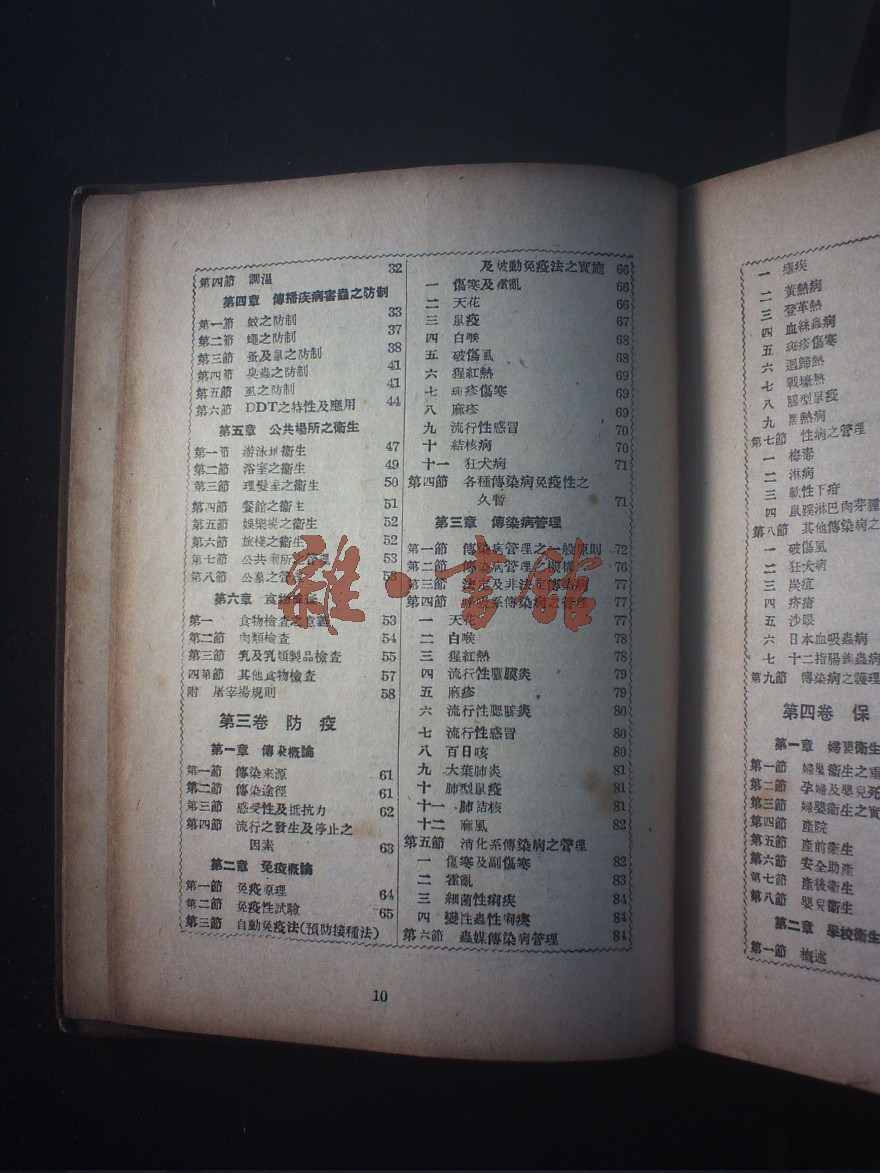 第四節 調温 32
第四章 傳播疾病害蟲之防制
第一節 蚊之防制 33
第二節 蠅之防制 37
第三節 蚤及鼠之防制 38
第四節 臭蟲之防制 41
第五節 虱之防制 41
第六節 DDT之特性及應用 44
第五章 公共場所之衞生
第一節 游泳池衞生 47
第二節 浴室之衞生 49
第三節 理髮室之衞生 50
第四節 餐館之衞生 51
第五節 娛樂塲之衞生 52
第六節 旅棧之衞生 52
第七節 公共廁所之管理 53
第八節 公墓之管理 53
第六章 食物檢查
第一 食物檢查之意義 53
第二節 肉類檢查 54
第三節 乳及乳類製品檢查 55
四第節 其他食物檢查 57
附 屠宰場規則 58
第三卷 防疫
第一章 傳染概論
第一節 傳染來源 61
第二節 傳染途徑 61
第三節 感受性及抵抗力 62
第四節 流行之發生及停止之
因素 63
第二章 免疫概論
第一節 免疫原理 64
第二節 免疫性試驗 65
第三節 自動免疫法(預防接種法)
及被動免疫法之實施 66
一 傷寒及霍亂 66
二 天花 66
三 鼠疫 67
四 白喉 68
五 破傷風 68
六 猩紅熱 69
七 斑疹傷寒 69
八 麻疹 69
九 流行性感冒 70
十 結核病 70
十一 狂犬病 71
第四節 各種傳染病免疫性之
久暫 71
第三章 傳染病管理
第一節 傳染病管理之一般原則 72
第二節 傳染病管理之機構 76
第三節 法定及非法定傳染病 77
第四節 呼吸系傳染病之管理 77
一 天花 77
二 白喉 78
三 猩紅熱 78
四 流行性腦膜炎 79
五 麻疹 79
六 流行性腮腺炎 80
七 流行性感冒 80
八 百日咳 80
九 大葉肺炎 81
十 肺型鼠疫 81
十一 肺結核 81
十二 麻風 82
第五節 消化系傳染病之管理
一 傷寒及副傷寒 82
二 霍亂 83
三 細菌性痢疾 84
四 變性蟲性痢疾 84
第六節 蟲媒傳染病管理 84
10
雜·書館
一 瘧疾
二 黃熱病
三 登革熱
四 血絲蟲病
五 斑疹傷寒
六 迴歸熱
七 戰壕熱
八 腺型鼠疫
九 黑熱病
第七節 性病之管理
一 梅毒
二 淋病
三 軟性下疳
四 鼠蹊淋巴肉芽腫
第八節 其他傳染病之
一 破傷風
二 狂犬病
三 炭疽
四 疥瘡
五 沙眼
六 日本血吸蟲病
七 十二指腸鉤蟲病
第九節 傳染病之護理
第四卷 保
第一章 婦嬰衞生
第一節 婦嬰衞生之重
第二節 孕婦及嬰兒死
第三節 婦嬰衞生之實
第四節 產院
第五節 產前衞生
第六節 安全助產
第七節 產後衞生
第八節 嬰兒衞生
第二章 學校衞生
第一節 概述